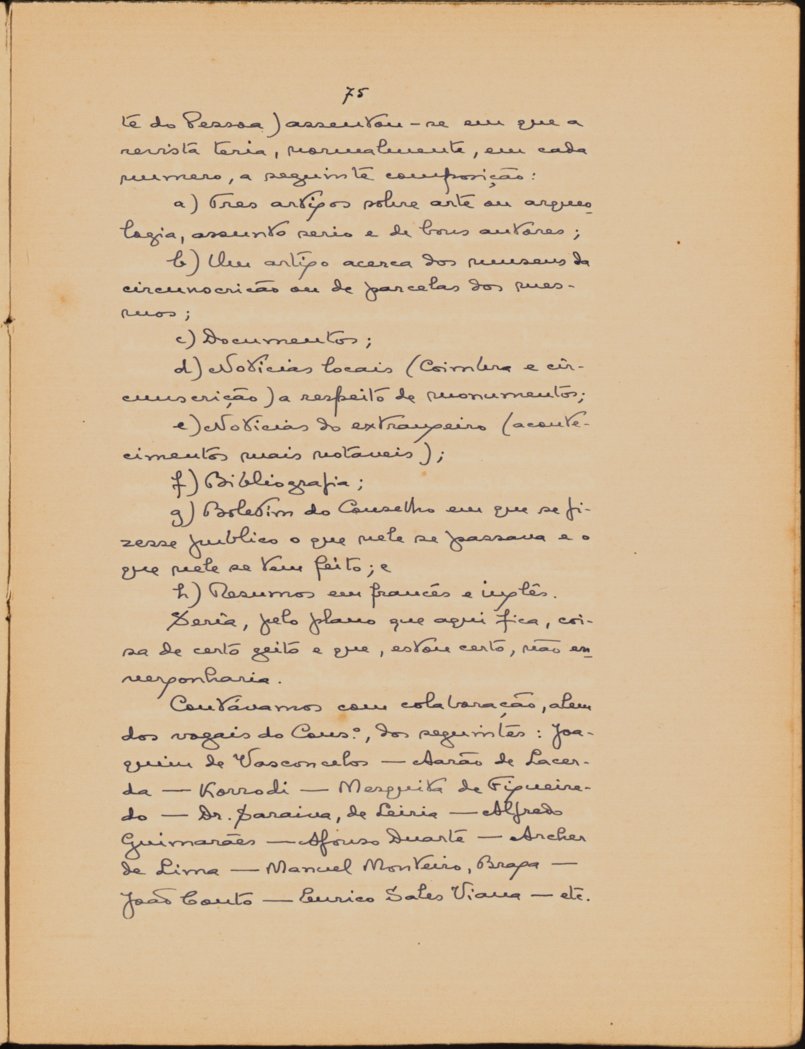 75
te do Pessoa) assentou-se em que a
revista teria, normalmente, em cada
numero, a seguinte composição:
a) Tres artigos sobre arte ou arqueo-
logia, assunto serio e de bons autores;
b) Um artigo acerca dos museus da
circunscrição ou de parcelas dos mes-
mos;
c) Documentos;
d) Noticias locais (Coimbra e cir-
cunscrição) a respeito de monumentos;
e) Noticias do extrangeiro (aconte-
cimentos mais notaveis);
f) Bibliografia;
g) Boletim do Conselho em que se fi-
zesse publico o que nele se passava e o
que nele se tem feito; e
h) Resumos em francês e inglês.
Seria, pelo plano que aqui fica, coi-
sa de certo geito e que, estou certo, não en-
vergonharia.
Contávamos com colaboração, alem
dos vogais do Cons.º, dos seguintes: Joa-
quim de Vasconcelos — Aarão de Lacer-
da — Korrodi — Mesquita de Figueire-
do — Dr. Saraiva, de Leiria — Alfredo
Guimarães — Afonso Duarte — Archer
de Lima — Manuel Monteiro, Braga —
João Couto — Eurico Sales Viana — etc.